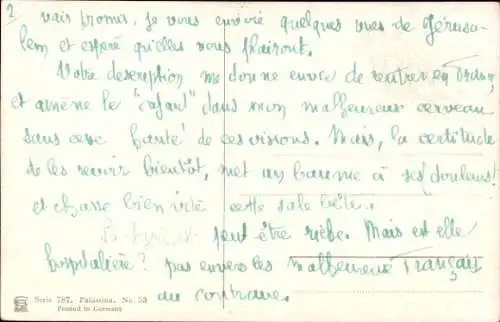 2 vais promis, je vous envoie quelques vues de Jérusa-
lem et espère qu'elles vous plairont.
Votre description me donne envie de rentrer en
et amène le "cafard" dans mon malheureux cerveau
sans cesse hanté de ces visions. Mais, la certitude
de les revoir bientôt, met un baume à ses douleurs!
et chasse bien vite cette sale bête.
peut être riche. Mais est elle
hospitalière? pas envers les malheureux Français
au contraire.
Serie 787. Palästina. No. 53
Printed in Germany